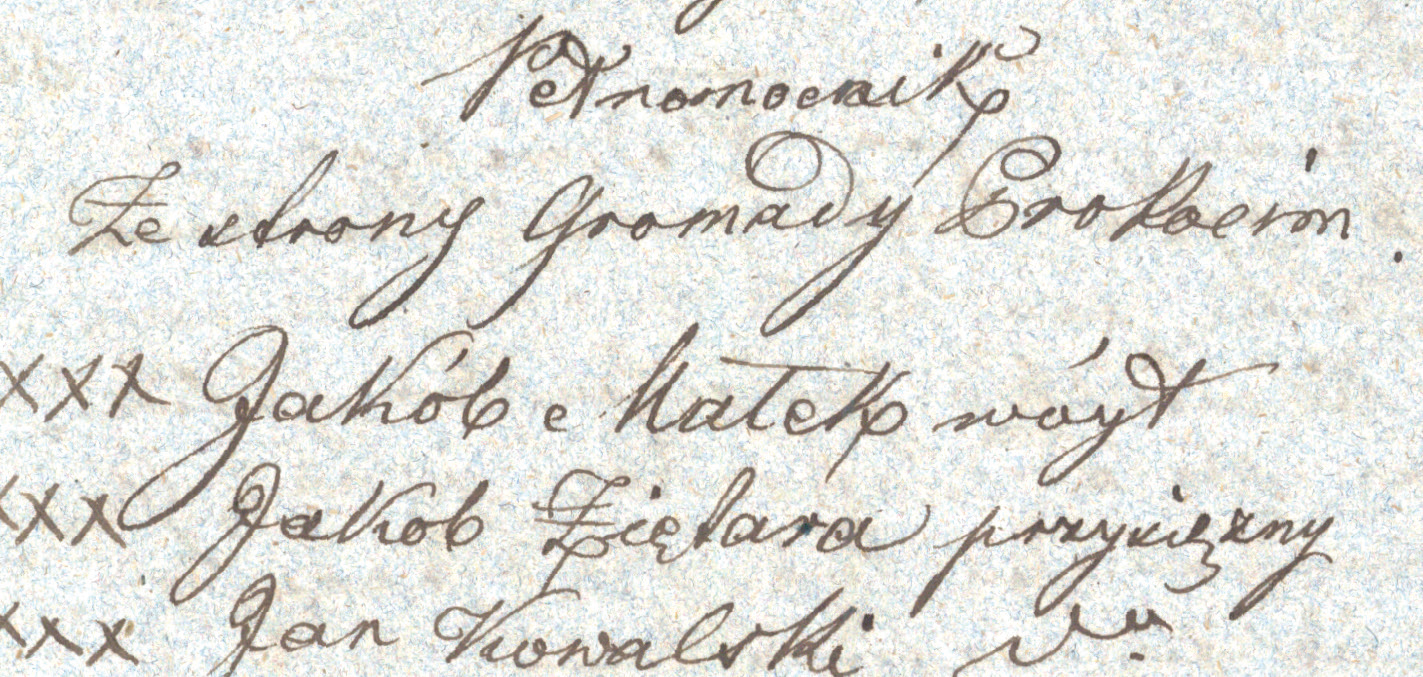 Pełnomocnik
Ze strony Gromady Prokocim.
xxx Jakób Małek wóyt
xxx Jakób Ziętara przysiężny
xxx Jan Kowalski